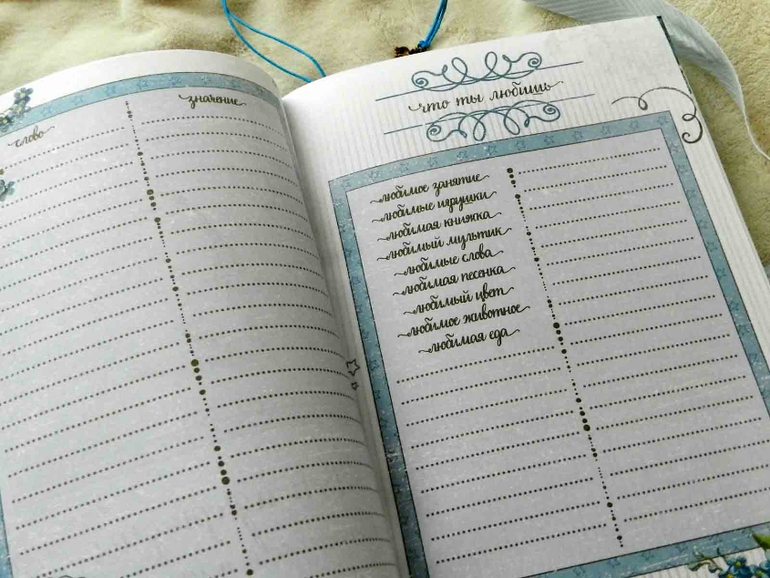 слово
значение
что ты любишь
любимое занятие
любимые игрушки
любимая книжка
любимый мультик
любимые слова
любимая песенка
любимый цвет
любимое животное
любимая еда